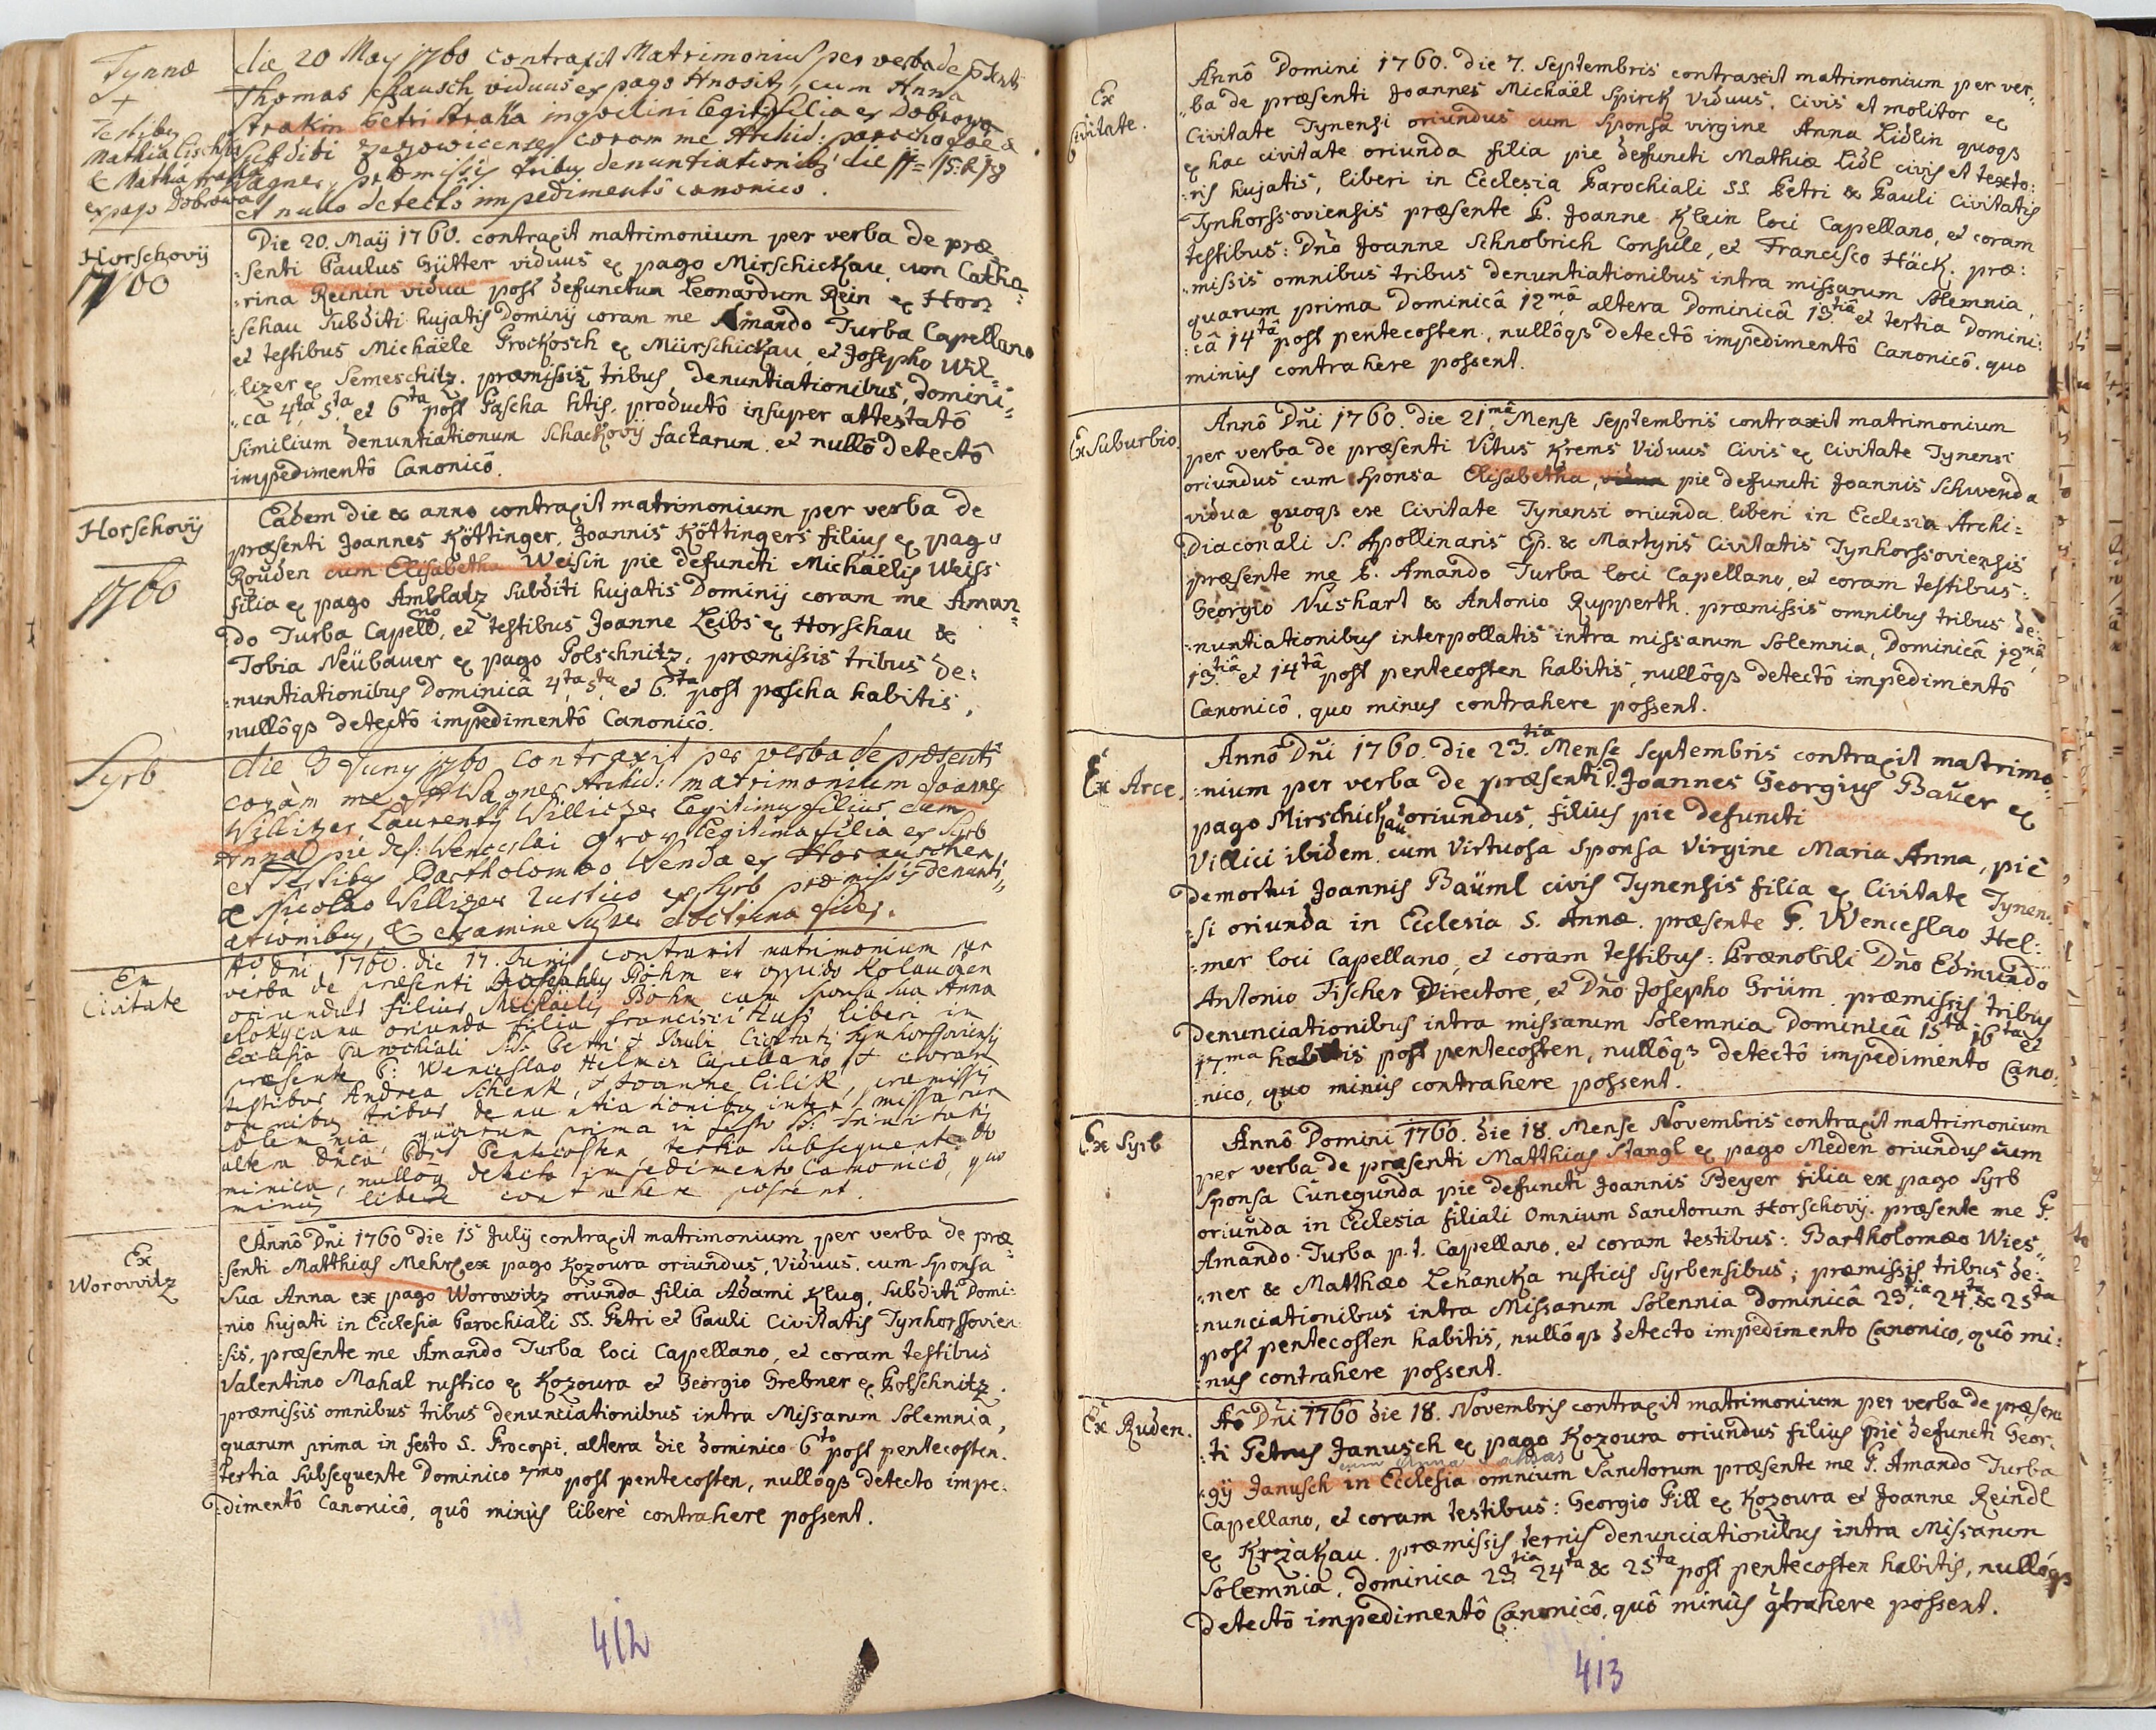 Tynnæ
+
Testibus
Mathia
& Mathia
ex pago Dobrowa
die 20 May 1760 contraxit Matrimonium per verba de
Thomas Rausch viduus ex pago Hnositz, cum Anna
Strakin Petri Straka inquilini legit filia ex Dobrowa
subditi coram me Archid: parocho
Wagner, præmissis tribus denuntiationibus die 11 = 15: & 18
et nullo detecto impedimento canonico.
Horschovÿ
1760
Die 20. Maÿ 1760. contraxit matrimonium per verba de præ
:senti Paulus Gütter viduus ex pago Mirschickau cum Catha:
:rina Reinin vidua post defunctum Leonardum Rein ex Hor
:schau Subditi hujatis Dominÿ coram me Amando Turba Capellano
et testibus Michäele Prockosch ex Mürschickau et Josepho Wil:
:lizer ex Semeschitz. præmissis tribus denuntiationibus, domini:
:câ 4ta 5ta et 6ta post Pascha htis. productô insuper attestatô
similium denuntiationum Schackovÿ factarum et nullô detectô
impedimentô Canonicô.
Horschovÿ
1760
Eadem die & anno contraxit matrimonium per verba de
præsenti Joannes Köttinger, Joannis Köttingers filius ex pago
Rouden cum Elisabetha Weisin pie defuncti Michäelis Weiss
filia ex pago Amblatz Subditi hujatis Dominÿ coram me Aman:
:do Turba Capellno, et testibus Joanne Leibs ex Horschau &
Tobia Neübauer ex pago Polschnitz. præmissis tribus de:
:nuntiationibus Dominicâ 4ta, 5ta et 6ta post pascha habitis,
nullôqß detectô impedimentô Canonicô.
Syrb
die 3 Juny 1760 contraxit per verba de præsenti
coràm me Wagner Archid: matrimonium Joannes
Willitzer Laurenty Willitzer legitimus filius cum
Anna pie def: Wenceslai Grow legitima filia ex Syrb
et testibus Bartholomæo Wenda ex
& Nicolao Willizer rustico ex Syrb præmissis denunti
ationibus, & examine super doctrina fidei.
Ex
Civitate
Ao Dni 1760. die 17. Junÿ contraxit matrimonium per
verba de præsenti Josephus Böhm ex oppido Kolautzen
oriundus filius Michäelis Böhm cum sponsa sua Anna
e Rokycana oriunda filia Francisci Huss liberi in
Ecclesia Parochiali SS. Petri et Pauli Civitatis Tynhorssoviensis
præsente P: Wenceslao Helmer Capellano et coram
testibus Andrea Schenk, et Joanne Cilik, præmissis
omnibus tribus denuntiationibus inter missarum
solemnia, quarum prima in festo SS: Trinitatis
altera Dnca Post Pentecosten, tertia subsequente do
minica, nulloq detecto impedimento Canonico, quo
minus libere contrahere possent.
Ex
Worowitz
Annô Dni 1760 die 15 Julÿ contraxit matrimonium per verba de præ
:senti Matthias Mehrl ex pago Kozoura oriundus, Viduus. cum Sponsa
Sua Anna ex pago Worowitz oriunda filia Adami Klug, Subditi Domi:
:nio hujati in Ecclesia Parochiali SS. Petri et Pauli Civitatis Tynhorssovien
:sis, præsente me Amando Turba loci Capellano, et coram testibus
Valentino Mahal rustico ex Kozoura et Georgio Grebner ex Polschnitz.
præmissis omnibus tribus denunciationibus intra Missarum Solemnia,
quarum prima in festo S. Procopi, altera die dominico 6to post pentecosten.
tertia Subsequente Dominico 7mo post pentecosten, nullôqß detecto impe:
:dimentô Canonicô, quô minùs liberè contrahere possent.
412
Ex
Civitate.
Annô Domini 1760. die 7. Septembris contraxit matrimonium per ver:
:ba de præsenti Joannes Michaël Spirck Viduus, Civis et molitor ex
Civitate Tynensi oriundus cum Sponsâ virgine Anna Lidlin quoqß
ex hac civitate oriunda filia pie defuncti Mathiæ Lidl civis et texto:
:ris hujatis, liberi in Ecclesia Parochiali SS. Petri & Pauli Civitatis
Tynhorssoviensis præsente P. Joanne Klein loci Capellano, et coram
testibus: Dño Joanne Schnobrich Consule, et Francisco Häck. præ:
:missis omnibus tribus denuntiationibus intra missarum Solemnia,
quarum prima Dominicâ 12mâ, altera Dominicâ 13tiâ et tertia Domini:
:câ 14tâ post pentecosten, nullôqß detectô impedimentô Canonicô. quo
minùs contrahere possent.
Ex Suburbio
Annô Dñi 1760. die 21mâ Mense Septembris contraxit matrimonium
per verba de præsenti Vitus Krems Viduus Civis ex Civitate Tynensi
oriundus cum Sponsa Elisabetha, vidua pie defuncti Joannis Schwenda
vidua quoqß exe Civitate Tynensi oriunda liberi in Ecclesia Archi:
Diaconali S. Apollinaris Ep. & Martyris Civitatis Tynhorssoviensis
præsente me P. Amando Turba loci Capellano, et coram testibus:
Georgio Nushart & Antonio Rupperth. præmissis omnibus tribus de:
:nuntiationibus interpollatis intra missarum Solemnia, Dominicâ 12mâ,
13tiâ et 14tâ post pentecosten habitis, nullôqß detectô impedimentô
Canonicô, quo minus contrahere possent.
Ex Arce.
Annô Dñi 1760. die 23tia Mense Septembris contraxit matrimo:
:nium per verba de præsenti D. Joannes Georgius Bauer ex
pago Mirschickau oriundus, filius pie defuncti
Villici ibidem cum Virtuosa Sponsa Virgine Maria Anna, piè
demortui Joannis Baüml civis Tynensis filia ex Civitate Tynen:
:si oriunda in Ecclesia S. Annæ. præsente P. Wenceslao Hel:
:mer loci Capellano, et coram testibus: Prænobili Dño Edmundo
Antonio Fischer Directore, et Dño Josepho Grüm. præmissis tribus
denunciationibus intra missarum Solemnia Dominicâ 15ta 16ta et
17ma habitis post pentecosten, nullôqß detectô impedimento Cano:
:nico, quo minùs contrahere possent.
Ex Syrb
Annô Domini 1760. die 18. Mense Novembris contraxit matrimonium
per verba de præsenti Matthias Stangl ex pago Meden oriundus cum
Sponsa Cunegunda pie defuncti Joannis Beyer filia ex pago Syrb
oriunda in Ecclesia filiali Omnium Sanctorum Horschovÿ. præsente me P.
Amando Turba p.t. Capellano, et coram testibus: Bartholomæo Wies:
:ner & Matthæo Lehancka rusticis Syrbensibus; præmissis tribus de:
:nunciationibus intra Missarum Solennia dominicâ 23tia, 24ta & 25ta
post pentecosten habitis, nullôqß detecto impedimento Canonico, quô mi:
:nus contrahere possent.
Ex Ruden.
Aô Dñi 1760 die 18. Novembris contraxit matrimonium per verba de præsen
:ti Petrus Janusch ex pago Kozoura oriundus filius piè defuncti Geor:
cum Anna
:gÿ Janusch in Ecclesia omnium Sanctorum præsente me P. Amando Turba
Capellano, et coram testibus: Georgio Pill ex Kozoura et Joanne Reindl
ex Krzakau. præmissis ternis denunciationibus intra Missarum
Solemnia, dominica 23tia 24ta & 25ta post pentecosten habitis, nullôqß
detectô impedimentô Canonicô, quô minùs gtrahere possent.
413